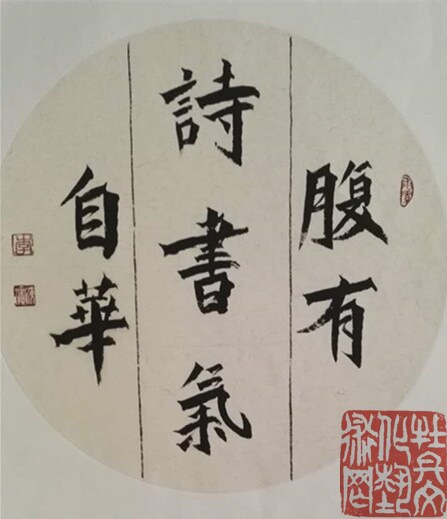 腹有
詩書氣
自華